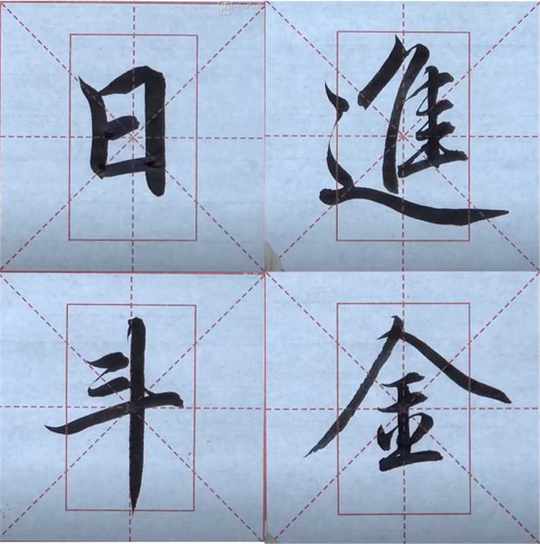 日進
斗金